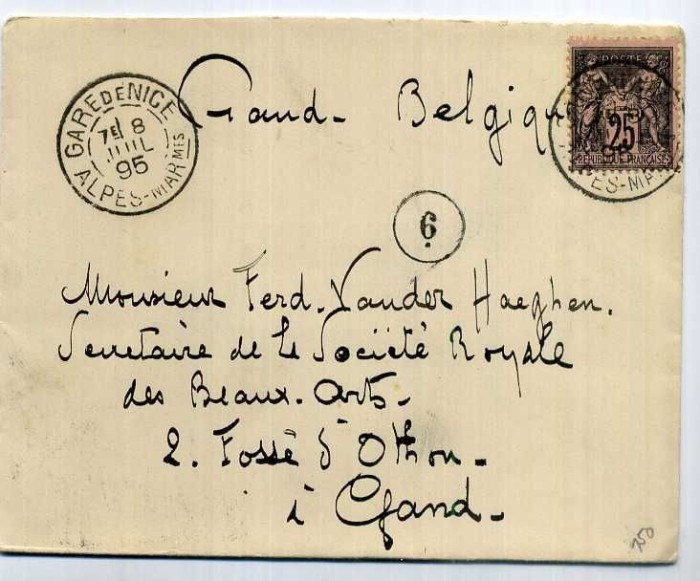 GARE DE NICE
7E 8
JUIL
95
ALPES-MARMES
Gand - Belgique
POSTE
25
REPUBLIQUE FRANCAISE
ES-MA
6.
Monsieur Ferd. Vander Haeghen.
Secretaire de la Société Royale
des Beaux-Arts-
2. Fossé d'Othon-
à Gand-
250